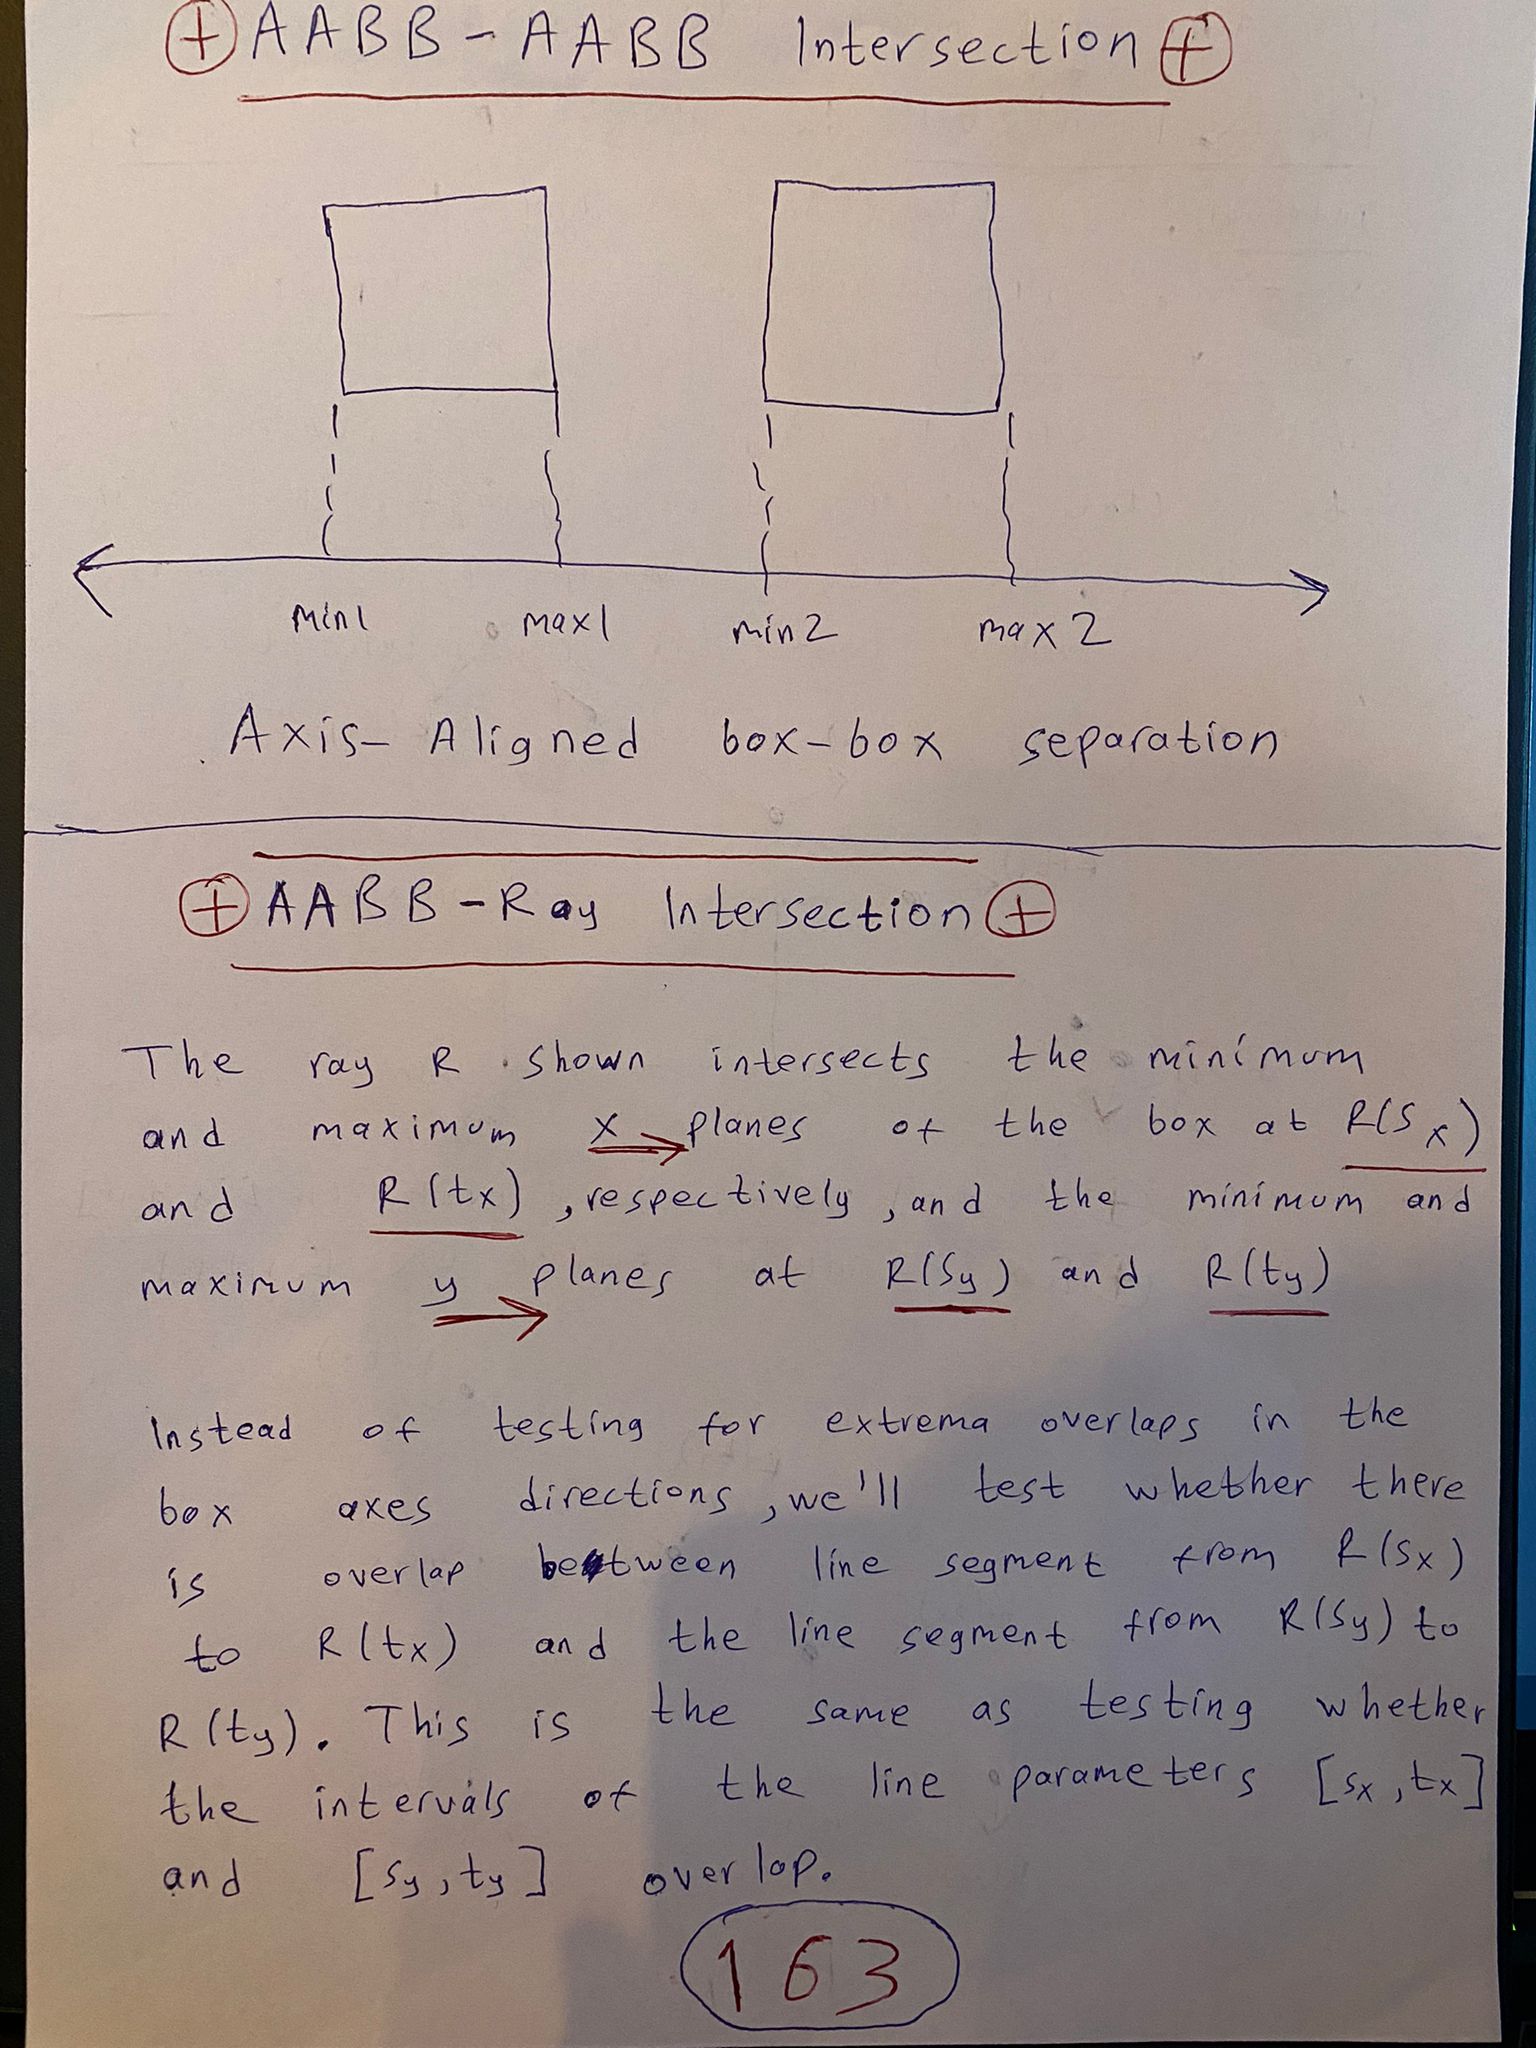 AABB-AABB Intersection
min1 max1 min2 max2
Axis-Aligned box-box separation
AABB-Ray Intersection
The ray R shown intersects the minimum
and maximum x planes of the box at R(sx)
and R(tx), respectively, and the minimum and
maximum y planes at R(sy) and R(ty)
Instead of testing for extrema overlaps in the
box axes directions, we'll test whether there
is overlap between line segment from R(sx)
to R(tx) and the line segment from R(sy) to
R(ty). This is the same as testing whether
the intervals of the line parameters [sx, tx]
and [sy, ty] overlap.
163